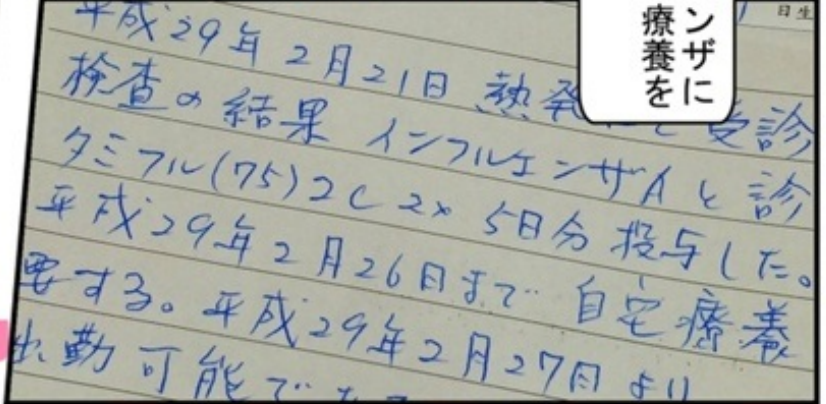 日生
ンザに
療養を
平成29年2月21日 熱発 受診
検査の結果 インフルエンザAと診
タミフル(75)2C 2x 5日分 投与した。
平成29年2月26日まで 自宅療養
要する。平成29年2月27日より
出勤可能で